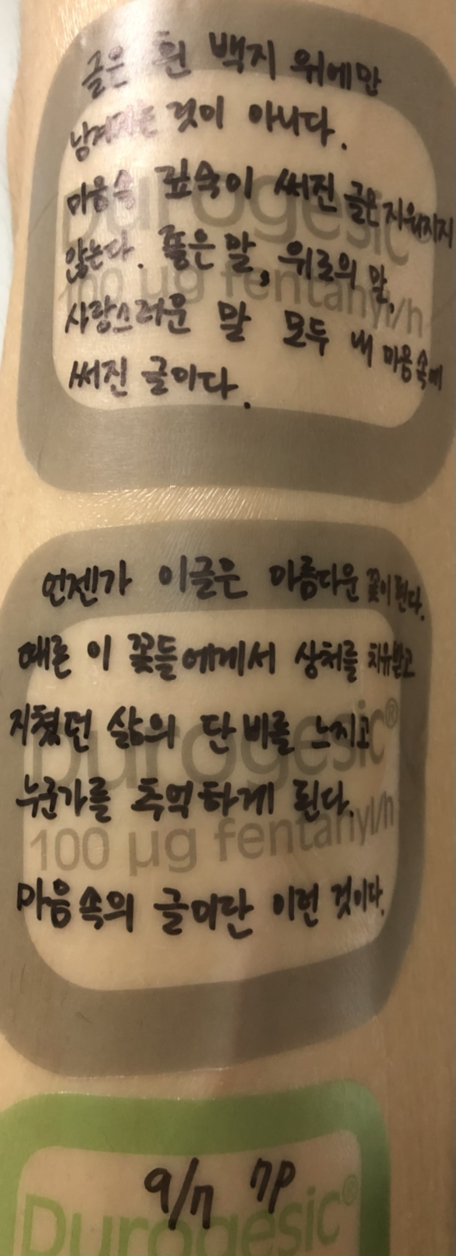 글은 흰 백지 위에만
남겨지는 것이 아니다.
마음속 깊숙이 써진 글은 지워지지
않는다. 좋은 말, 위로의 말,
사랑스러운 말 모두 내 마음속에
써진 글이다.
Durogesic
100 µg fentanyl/h
언젠가 이글은 아름다운 꽃이 핀다.
때론 이 꽃들에게서 상처를 치유받고
지쳤던 삶의 단비를 느끼고
누군가를 추억하게 된다.
마음속의 글이란 이런 것이다.
Durogesic®
100 µg fentanyl/h
9/7 7P
Durogesic®